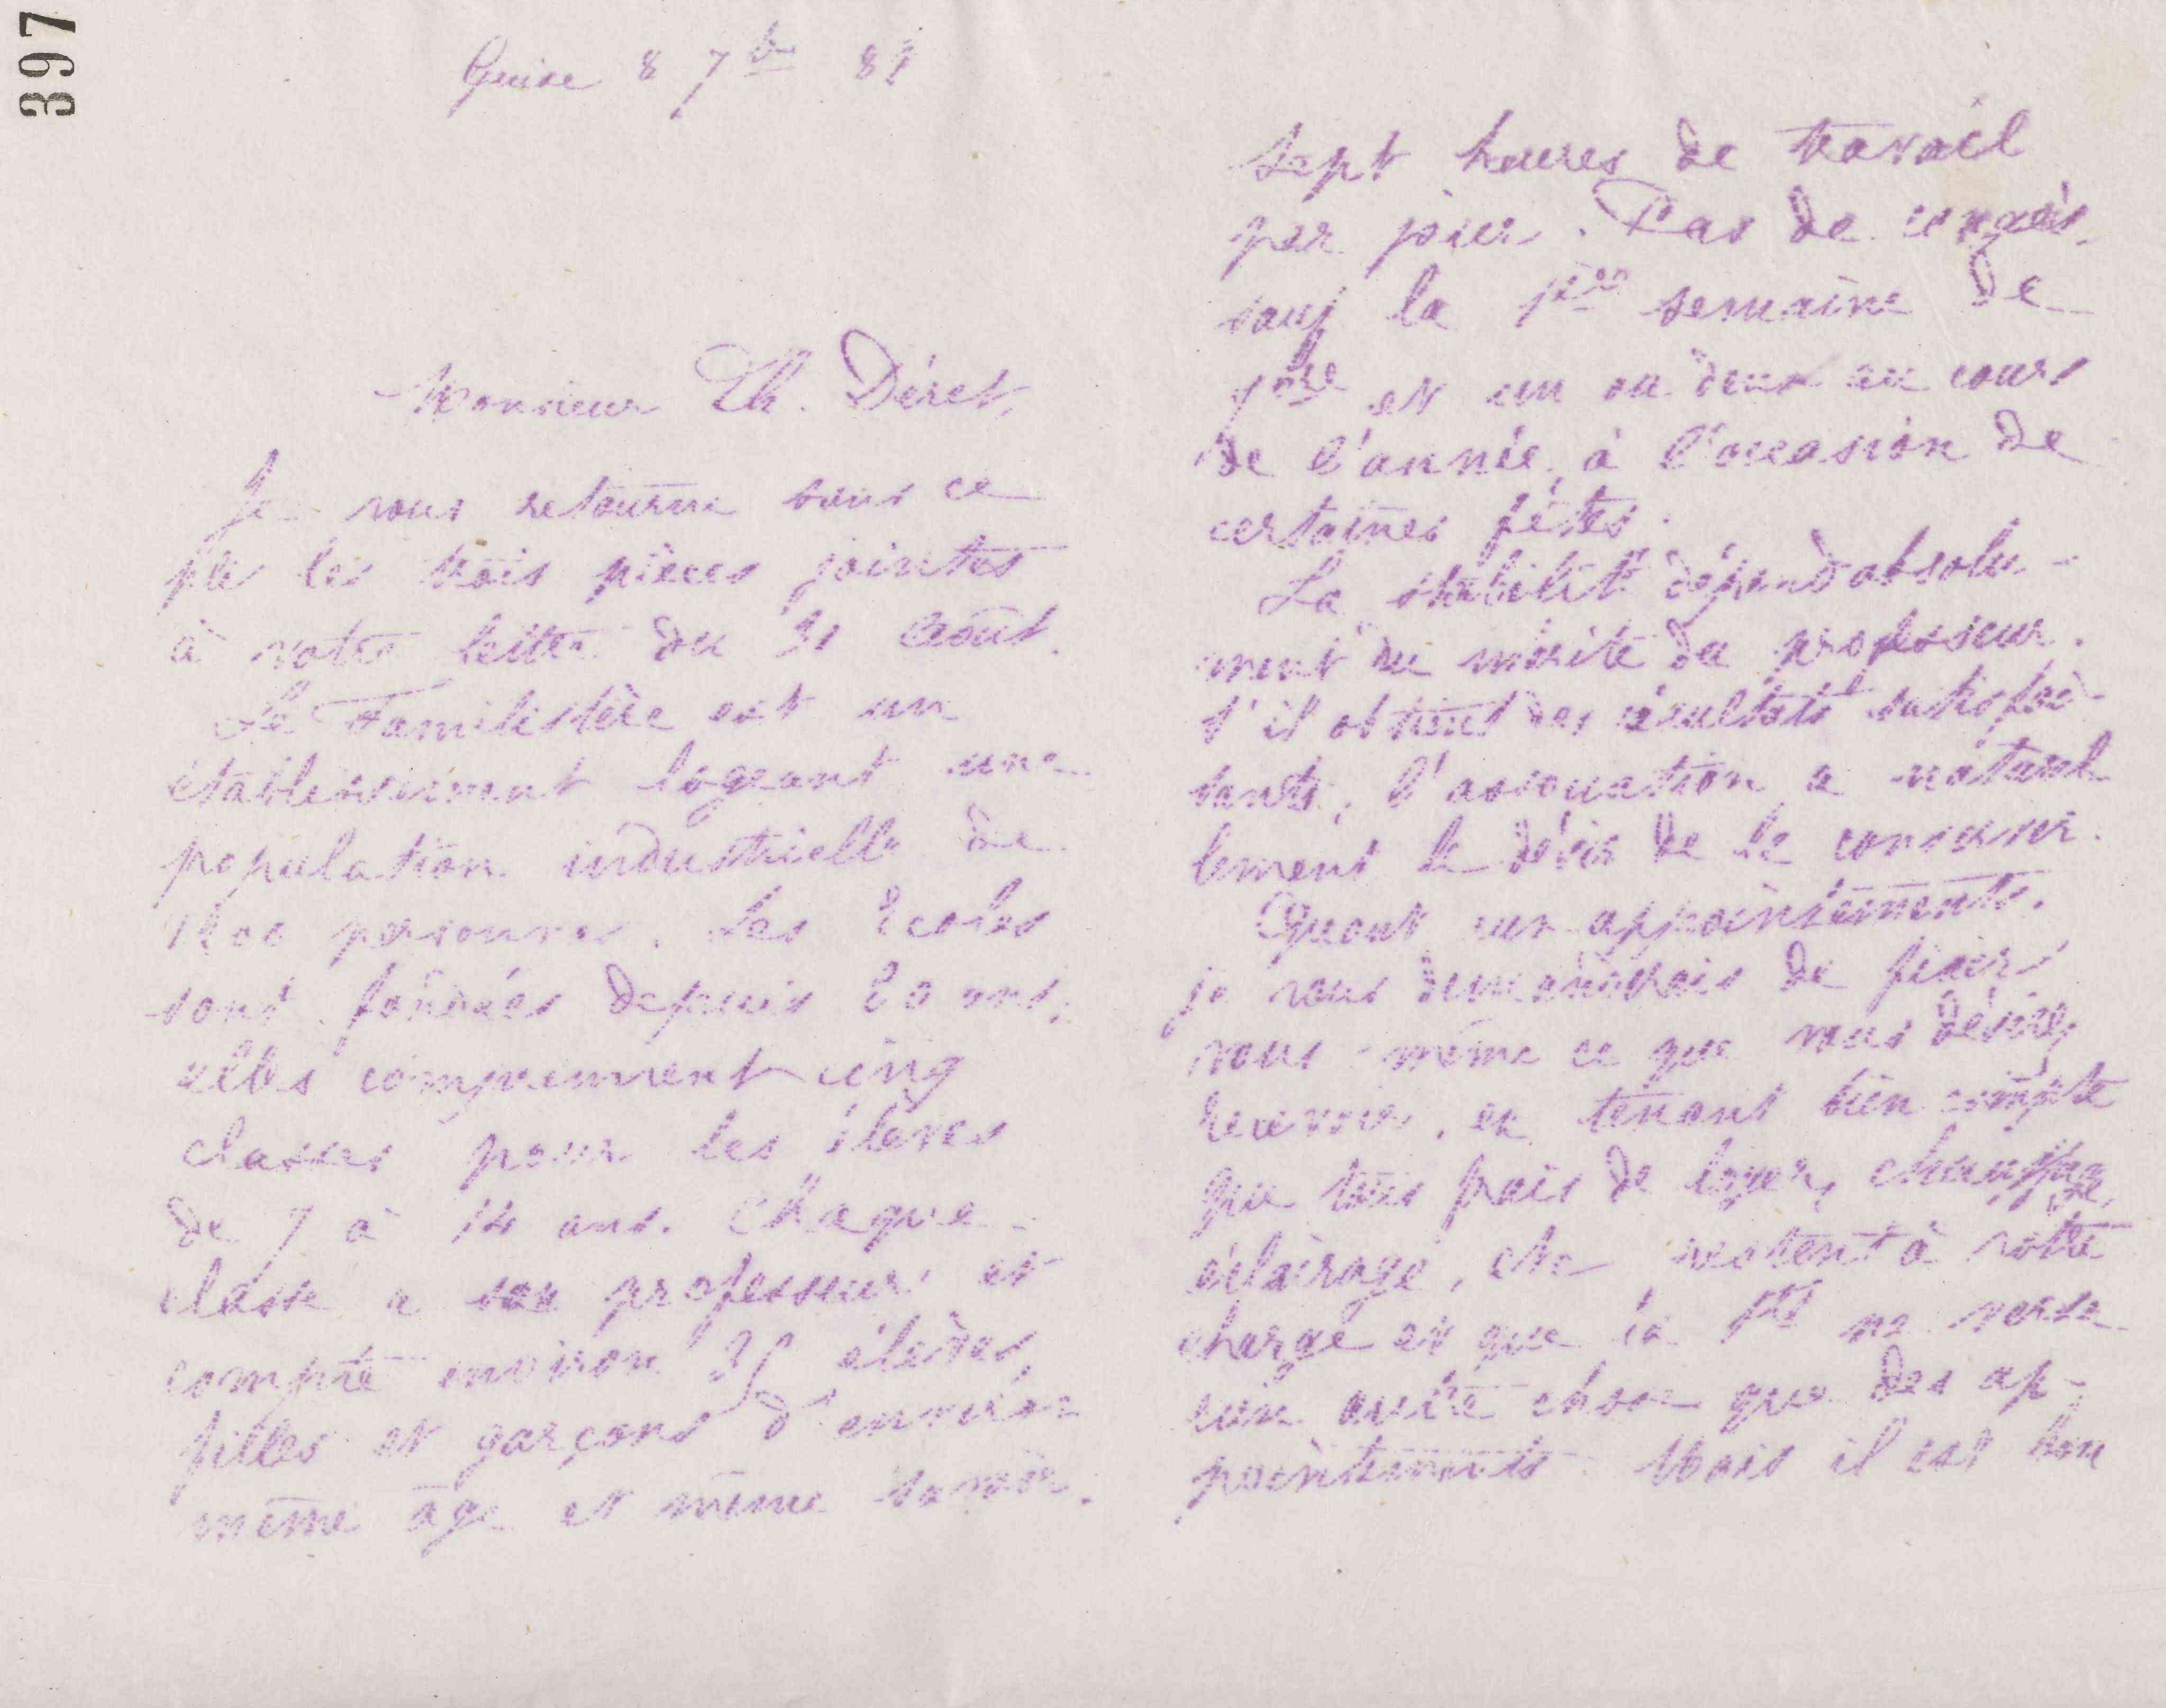 397
Guise 8 7bre 81
Monsieur Ch. Déret,
Je vous retourne sous ce
pli les trois pièces jointes
à votre lettre du 31 Août.
Le Familistère est un
établissement logeant une
population industrielle de
1200 personnes. Les Ecoles
sont fondées depuis 20 ans;
elles comprennent cinq
classes pour les élèves
de 7 à 14 ans. Chaque
classe a son professeur et
compte environ 35 élèves,
filles et garçons d'environ
même âge et même savoir.
Sept heures de travail
par jour. Pas de congés,
sauf la 1ère semaine de
7bre et un ou deux au cours
de l'année, à l'occasion de
certaines fêtes.
La stabilité dépend absolu-
ment du mérite du professeur.
S'il obtient des résultats satisfai-
sants, l'association a naturel-
lement le désir de le conserver.
Quant aux appointements,
je vous demanderais de fixer
vous-même ce que vous désirez
recevoir, en tenant bien compte
que tous frais de loyer, chauffage,
éclairage, etc restent à votre
charge et que la Sté ne verse
rien autre chose que des ap-
pointements. Mais il est bon